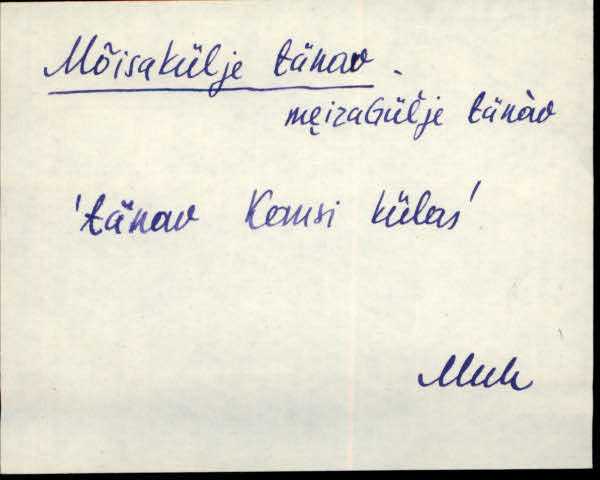 Mõisakülje tänav.
męizaGülje tänàv
'tänav Kansi külas'
Muh